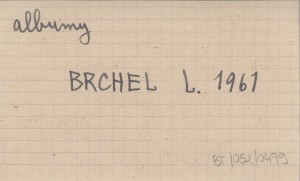 albumy
BRCHEL L. 1961
BT/052/0479